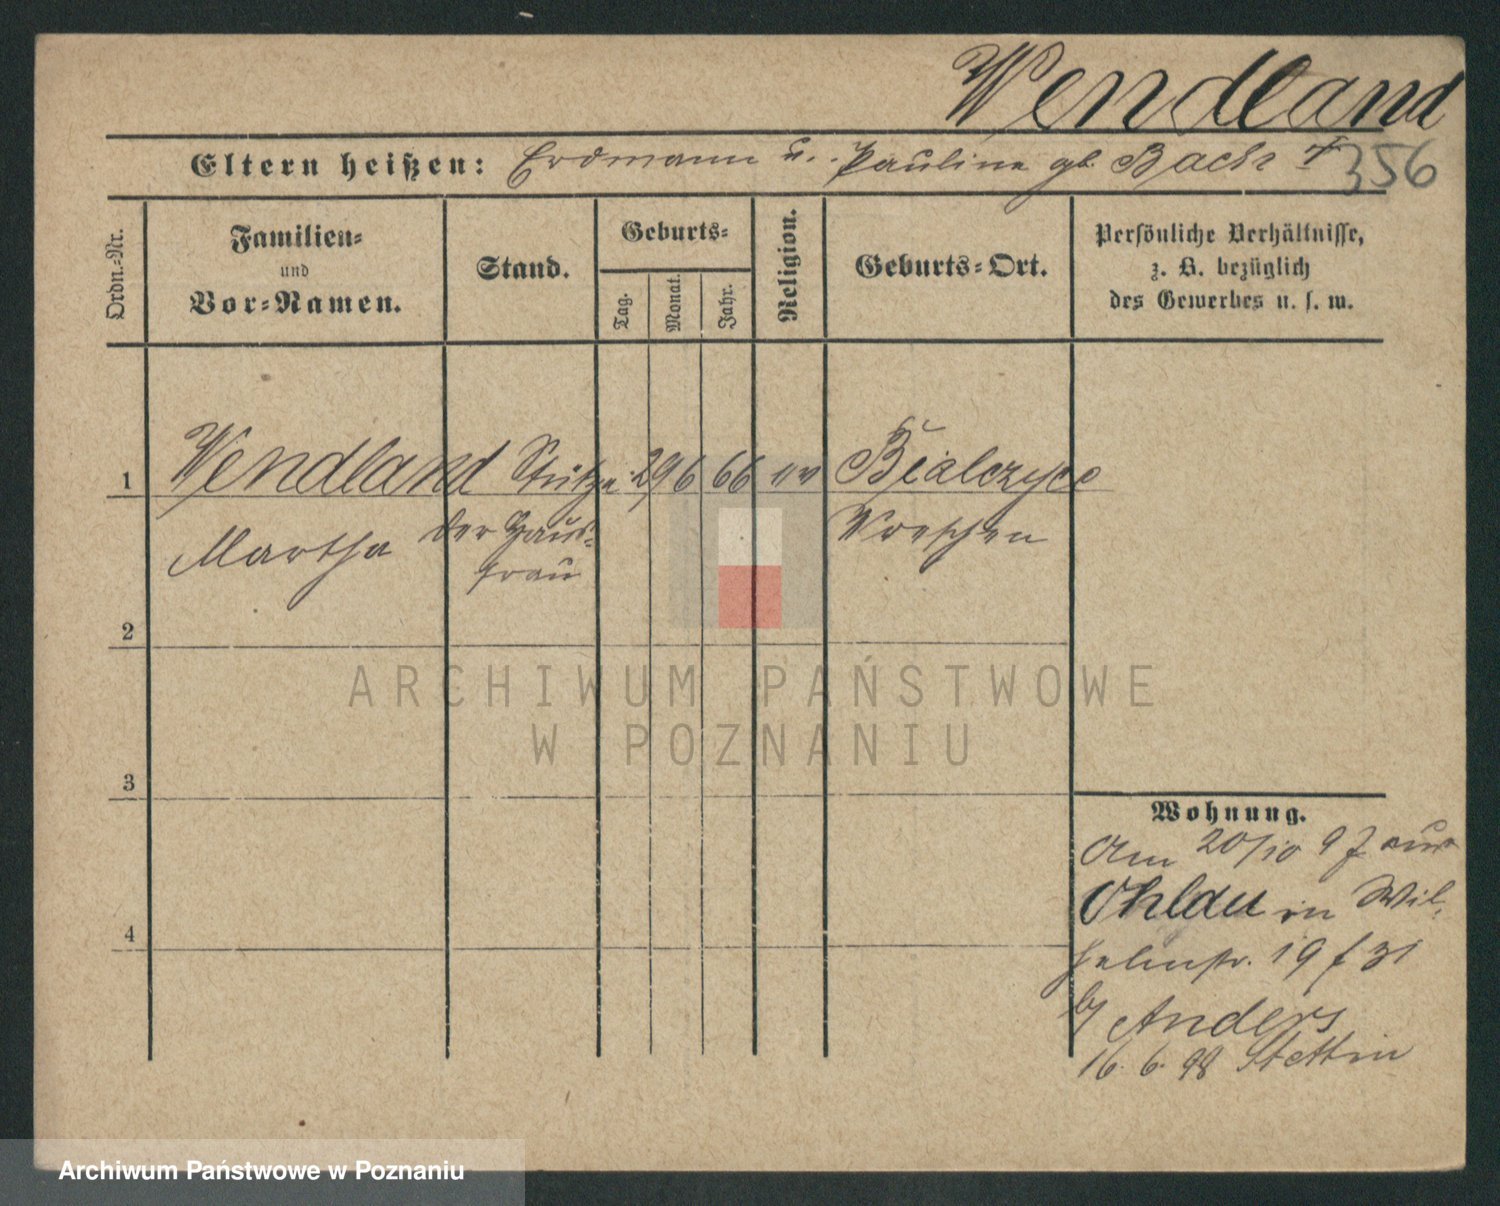 Wendland
Eltern heißen: Erdmann u. Pauline gb. Bach †
356
Ordn.-Nr.
Familien-
und
Vor-Namen.
Stand.
Geburts-
Tag.
Monat.
Jahr.
Religion.
Geburts-Ort.
Persönliche Verhältnisse,
z. B. bezüglich
des Gewerbes u. s. w.
1 Wendland Stütze 29 6 66 ev Bialczyce
Martha der Haus- Wreschen
frau
2
3
4
ARCHIWUM PAŃSTWOWE
W POZNANIU
Wohnung.
Am 20/10 97 aus
Ohlau in Wil-
helmstr. 19 f 31
b/ Anders
16. 6. 98 Stettin
Archiwum Państwowe w Poznaniu